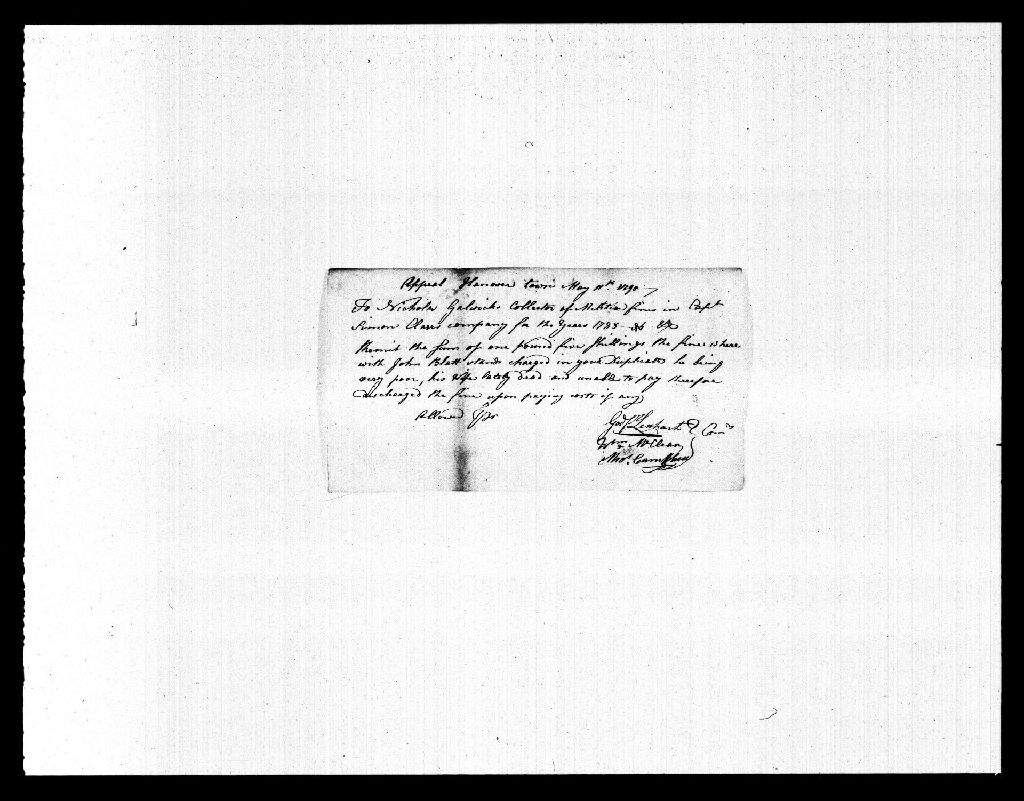 Appeal Hanover town May 11th 1790
To Nicholas Gelwicks Collector of Militia fines in Capt
Simon Clares company for the Years 1785 - 86 &c
Remit the sum of one pound five Shillings the fines where
with John Klatt stands charged in your Duplicate he being
very poor, his Wife lately dead and unable to pay therefore
discharged the fine upon paying costs if any
Allowed
Gdf Lenhart
Wm McClean Com
Thos Campbell